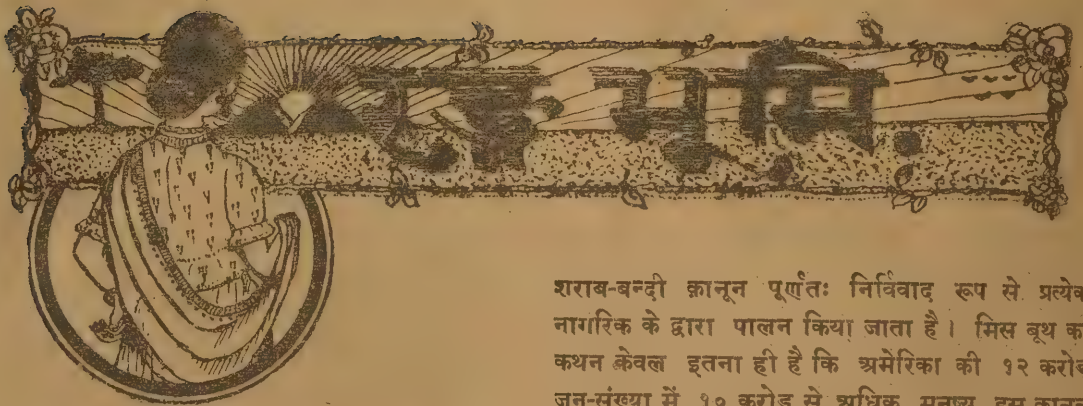 रङ्ग भूमि.
शराब-बन्दी क़ानून पूर्णतः निर्विवाद रूप से प्रत्येक
नागरिक के द्वारा पालन किया जाता है। मिस बूथ का
कथन केवल इतना ही है कि अमेरिका की १२ करोड़
जन-संख्या में १० करोड़ से अधिक मनुष्य इस क़ानून